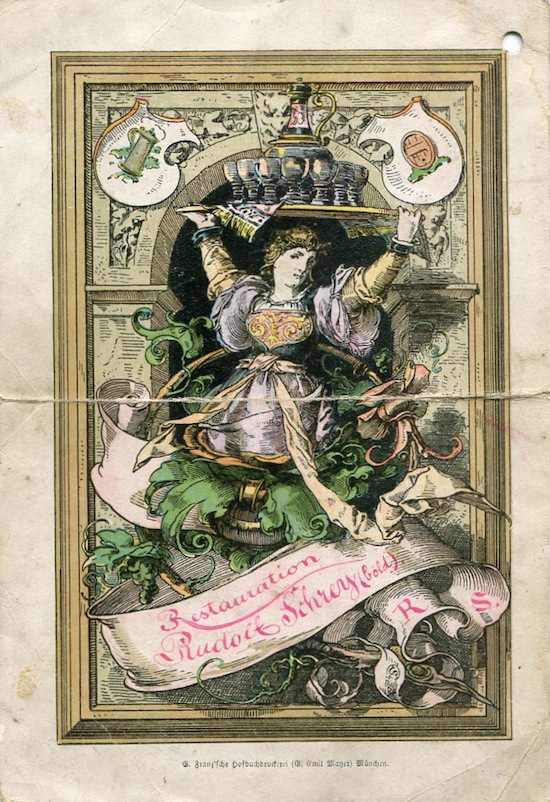 Restauration
Rudolf Schrey
R. S.
E. Franz'sche Hofbuchdruckerei (G. Emil Mayer) München.